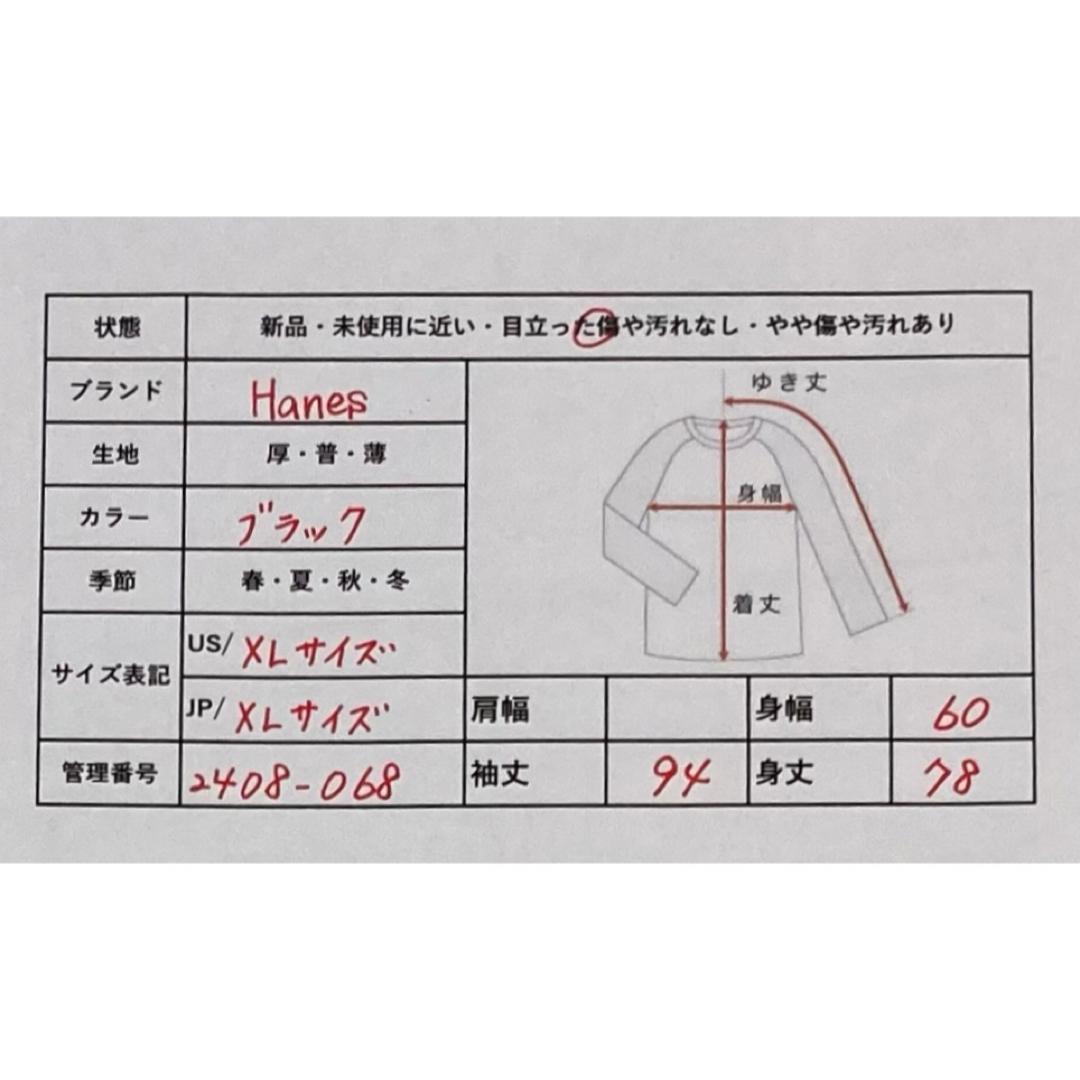 状態 新品・未使用に近い・目立った傷や汚れなし・やや傷や汚れあり
ブランド Hanes
生地 厚・普・薄
カラー ブラック
季節 春・夏・秋・冬
サイズ表記 US/ XLサイズ
JP/ XLサイズ
管理番号 2408-068
ゆき丈
身幅
着丈
肩幅 身幅 60
袖丈 94 身丈 78